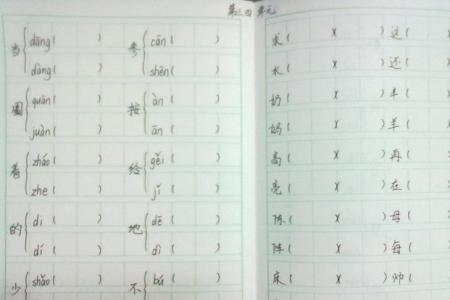 第三四单元
当 { dāng ( ) 参 { cān ( )
dàng ( ) shēn ( )
圈 { quān ( ) 按 { àn ( )
juàn ( ) ān ( )
着 { zháo ( ) 给 { gěi (
zhe ( ) jǐ (
的 { di ( ) 地 { dē ( )
dí ( ) dì ( )
少 { shǎo ( ) 不 { bú ( )
求 ( )( ) 这 (
水 ( )( ) 还 (
奶 ( )( ) 丰 (
妈 ( )( ) 羊 (
高 ( )( ) 再 (
亮 ( )( ) 在 (
陈 ( )( ) 母 (
阵 ( )( ) 每 (
床 ( )( ) 帅 (